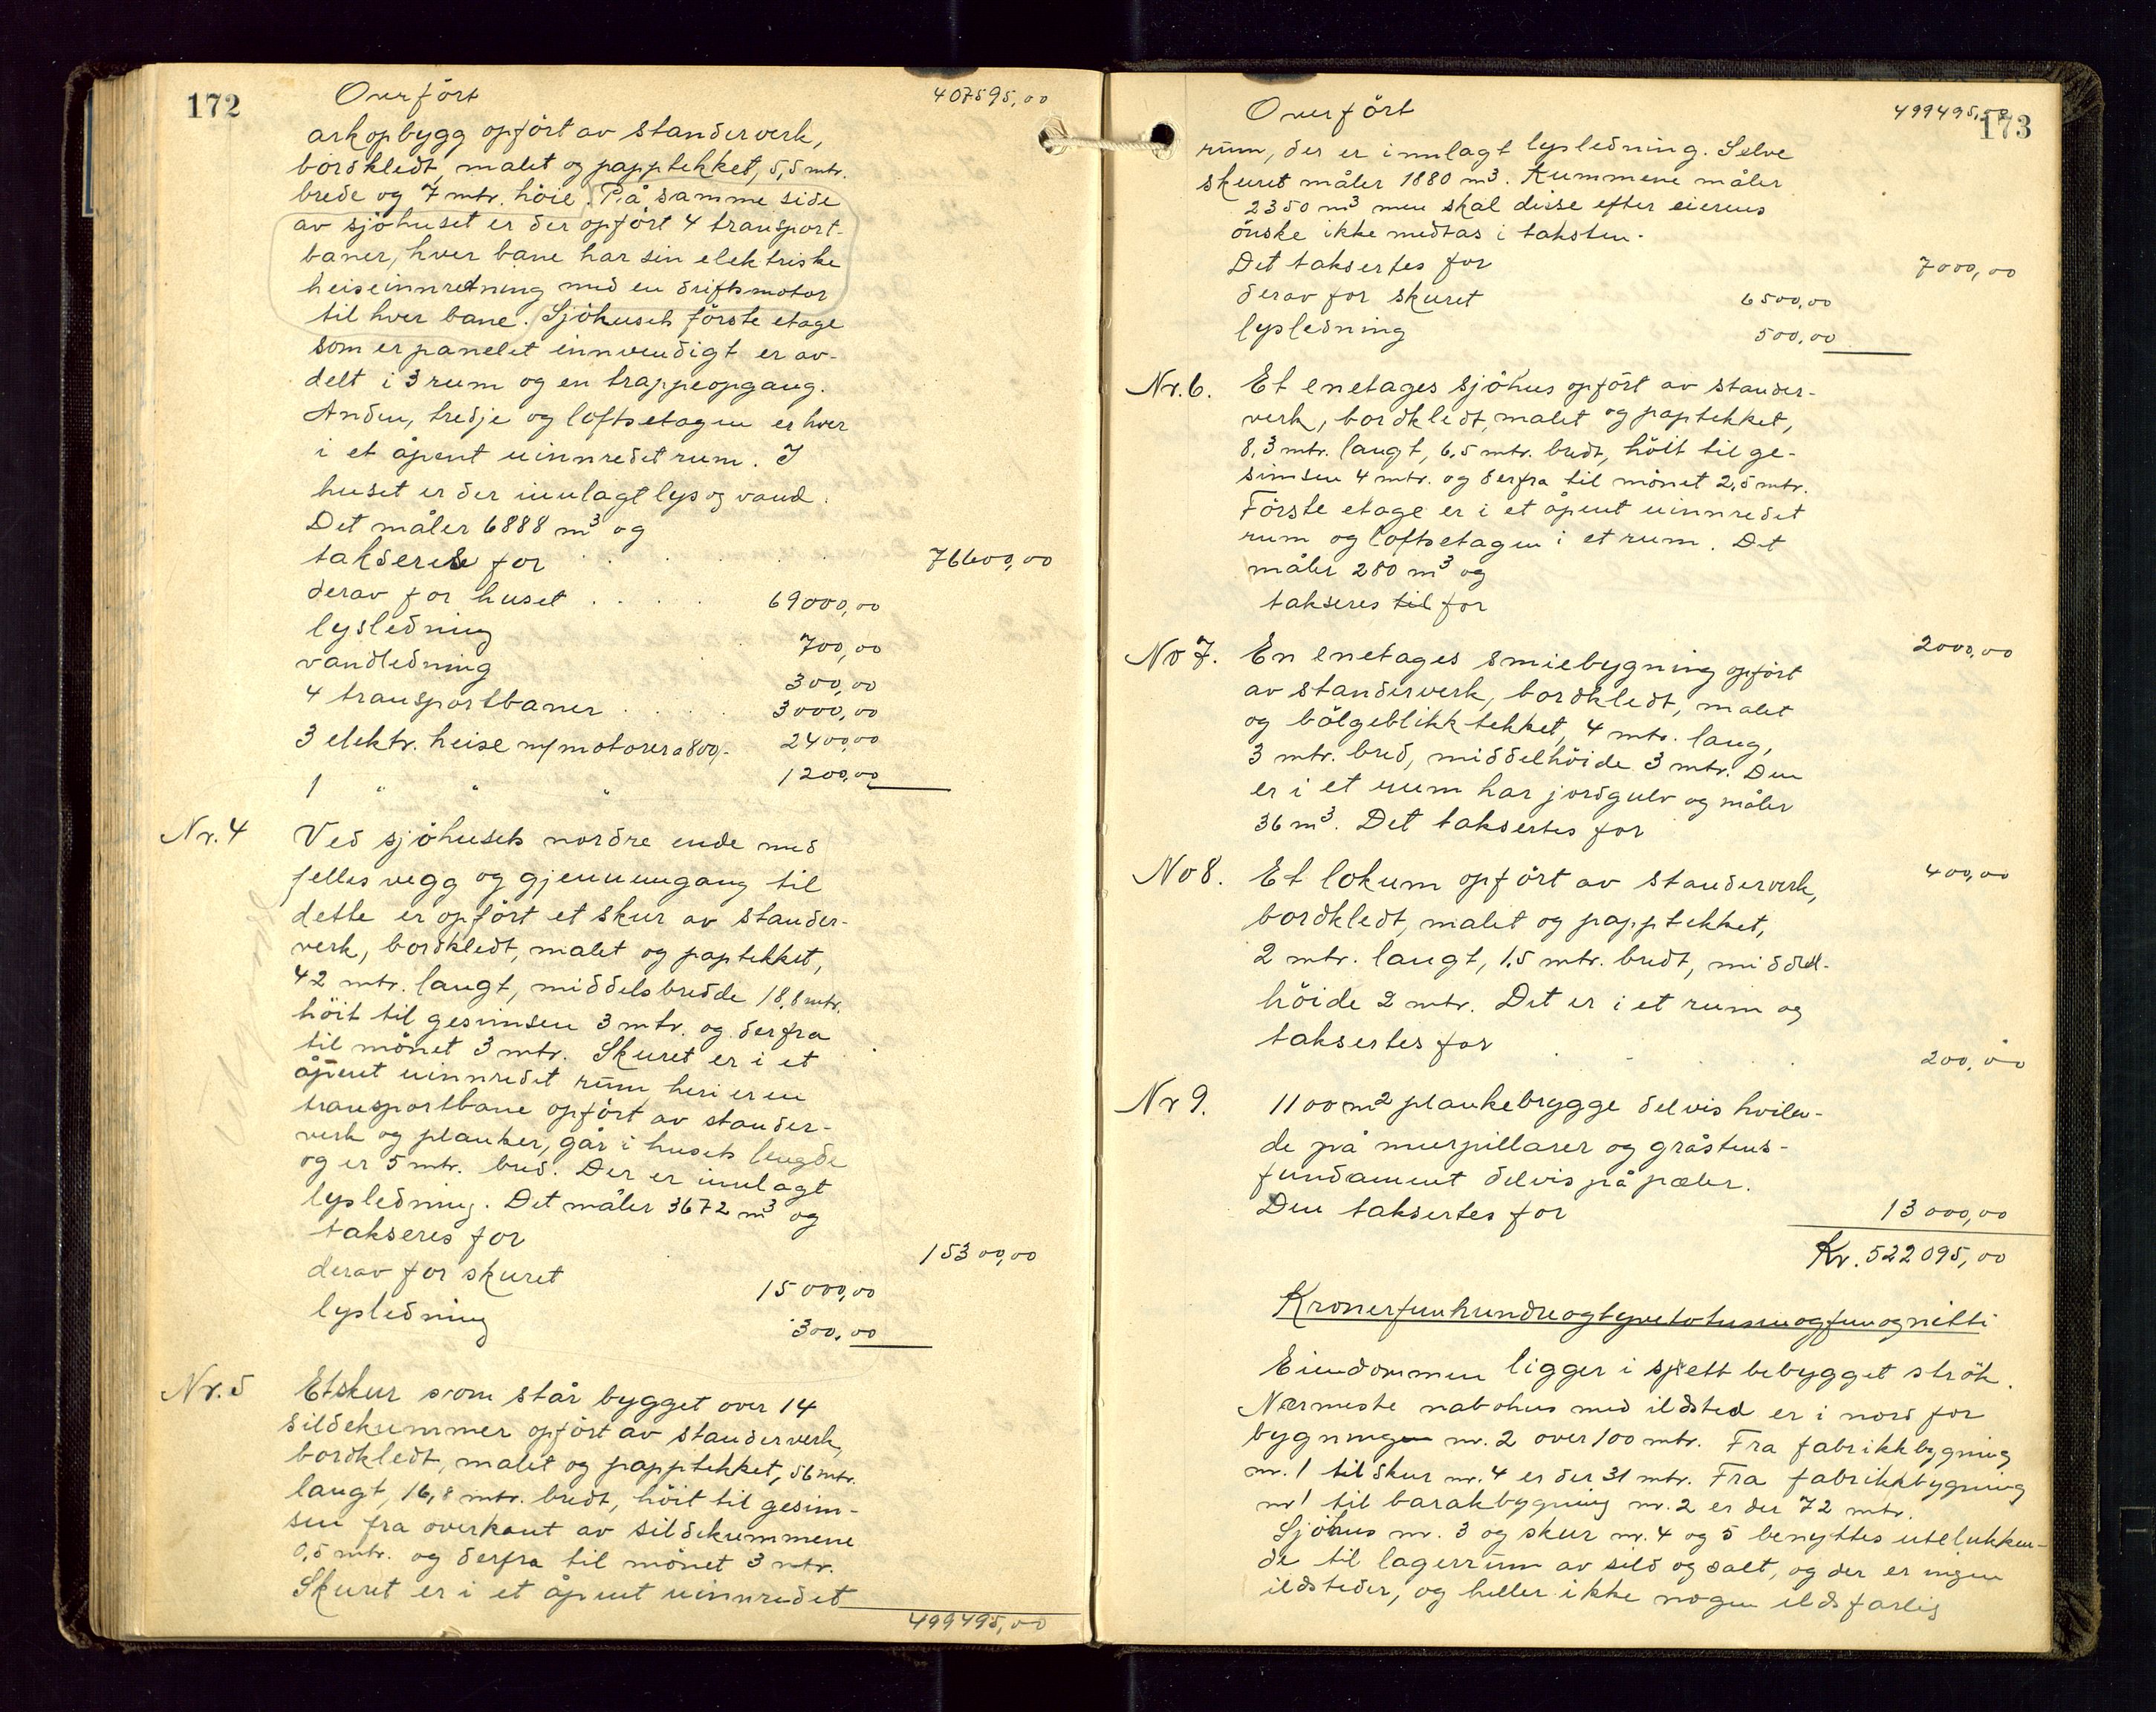 172
Overført 407595,00
arkopbygg opført av standerverk,
bordkledt, malet og papptekket, 5,5 mtr.
brede og 7 mtr. höie. På samme side
av sjöhuset er der opfört 4 transport-
baner, hver bane har sin elektriske
heiseinnretning med en driftsmotor
til hver bane. Sjöhusets förste etage
som er panelet innvendigt er av-
delt i 3 rum og en trappeopgang.
Anden, tredje og loftsetagen er hver
i et åpent uinnredet rum. I
huset er der innlagt lys og vand.
Det måler 6888 m3 og
takseres for 76600,00
derav for huset . . . . 69000,00
lysledning 700,00
vandledning 300,00
4 transportbaner . . . . 3000,00
3 elektr. heise m/motorer a 800,- 2400,00
1 " " " 1200,00
Nr. 4 Ved sjöhusets nordre ende med
felles vegg og gjennemgang til
dette er opfört et skur av stander-
verk, bordkledt, malet og paptekket,
42 mtr. langt, middelsbredde 18,8 mtr.
höit til gesimsen 3 mtr. og derfra
til mönet 3 mtr. Skuret er i et
åpent uinnredet rum heri er en
transportbane opfört av stander-
verk og planker, går i husets lengde
og er 5 mtr. bred. Der er innlagt
lysledning. Det måler 3672 m3 og
takseres for 15300,00
derav for skuret 15000,00
lysledning 300,00
Nr. 5 Et skur som står bygget over 14
sildekummer opfört av standerverk,
bordkledt, malet og papptekket, 56 mtr.
langt, 16,8 mtr. bredt, höit til gesim-
sen fra overkant av sildekummene
0,5 mtr. og derfra til mönet 3 mtr.
Skuret er i et åpent uinnredet
499495,00
173
Overfört 499495,00
rum, der er innlagt lysledning. Selve
skuret måler 1880 m3. Kummene måler
2350 m3 men skal disse efter eierens
önske ikke medtas i taksten.
Det taksertes for 7000,00
derav for skuret 6500,00
lysledning 500,00
Nr. 6. Et enetages sjöhus opfört av stander-
verk, bordkledt, malet og paptekket,
8,3 mtr. langt, 6,5 mtr. bredt, höit til ge-
simsen 4 mtr. og derfra til mönet 2,5 mtr.
Förste etage er i et åpent uinnredet
rum og loftsetagen i et rum. Det
måler 280 m3 og
takseres til for 2000,00
No 7. En enetages smiebygning opfört
av standerverk, bordkledt, malet
og bölgeblikktekket, 4 mtr. lang,
3 mtr. bred, middelhöide 3 mtr. Den
er i et rum har jordgulv og måler
36 m3. Det taksertes for 400,00
No 8. Et lokum opfört av standerverk,
bordkledt, malet og papptekket,
2 mtr. langt, 1,5 mtr. bredt, middel-
höide 2 mtr. Det er i et rum og
taksertes for 200,00
Nr 9. 1100 m2 plankebrygge delvis hvilen-
de på murpillarer og gråstens-
fundament delvis på pæler.
Den taksertes for 13000,00
Kr. 522095,00
Kronerfemhundreogtyvetotusenogfemognitti
Eiendommen ligger i spett bebygget strök.
Nærmeste nabohus med ildsted er i nord for
bygningen nr. 2 over 100 mtr. Fra fabrikkbygning
nr. 1 til skur nr. 4 er der 31 mtr. Fra fabrikkbygning
nr 1 til barakbygning nr. 2 er der 72 mtr.
Sjöhus nr. 3 og skur nr. 4 og 5 benyttes utelukken-
de til lagerrum av sild og salt, og der er ingen
ildsteder, og heller ikke nogen ildsfarlig